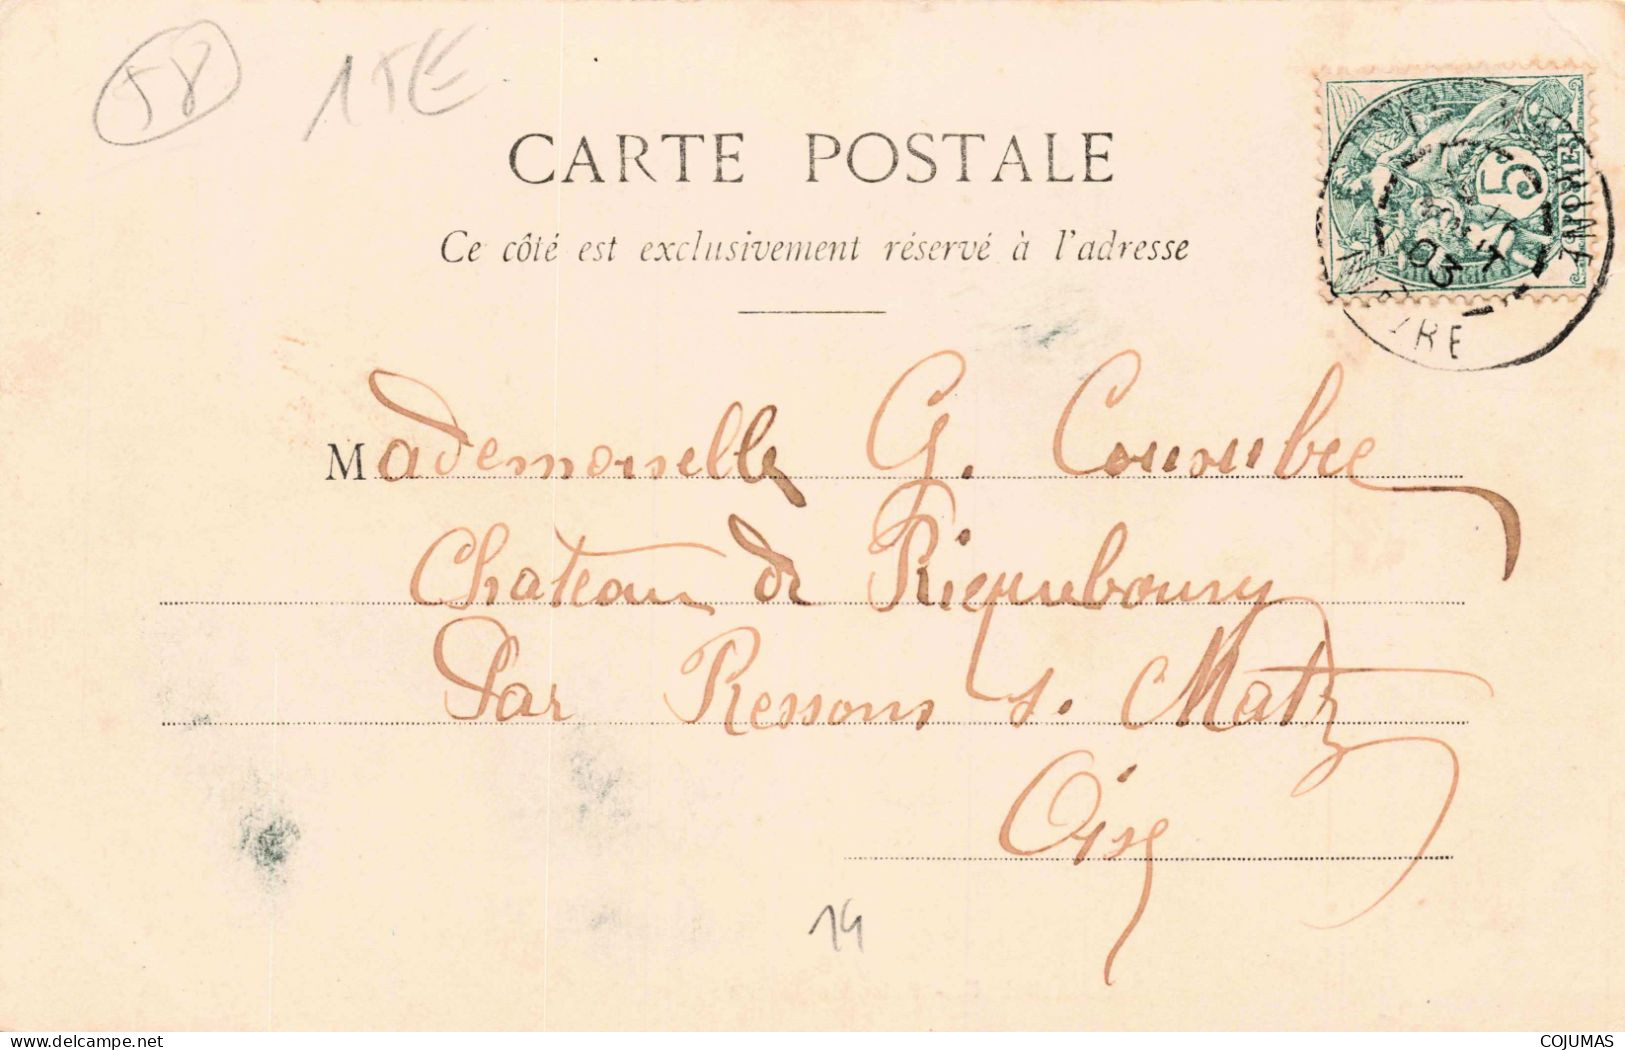 58
1TE
CARTE POSTALE
Ce côté est exclusivement réservé à l'adresse
5
POSTES
03
Mademoiselle G.
Chateau de Riquebourg
Par Ressons s. Matz
Oise
14
delcampe.net
COJUMAS